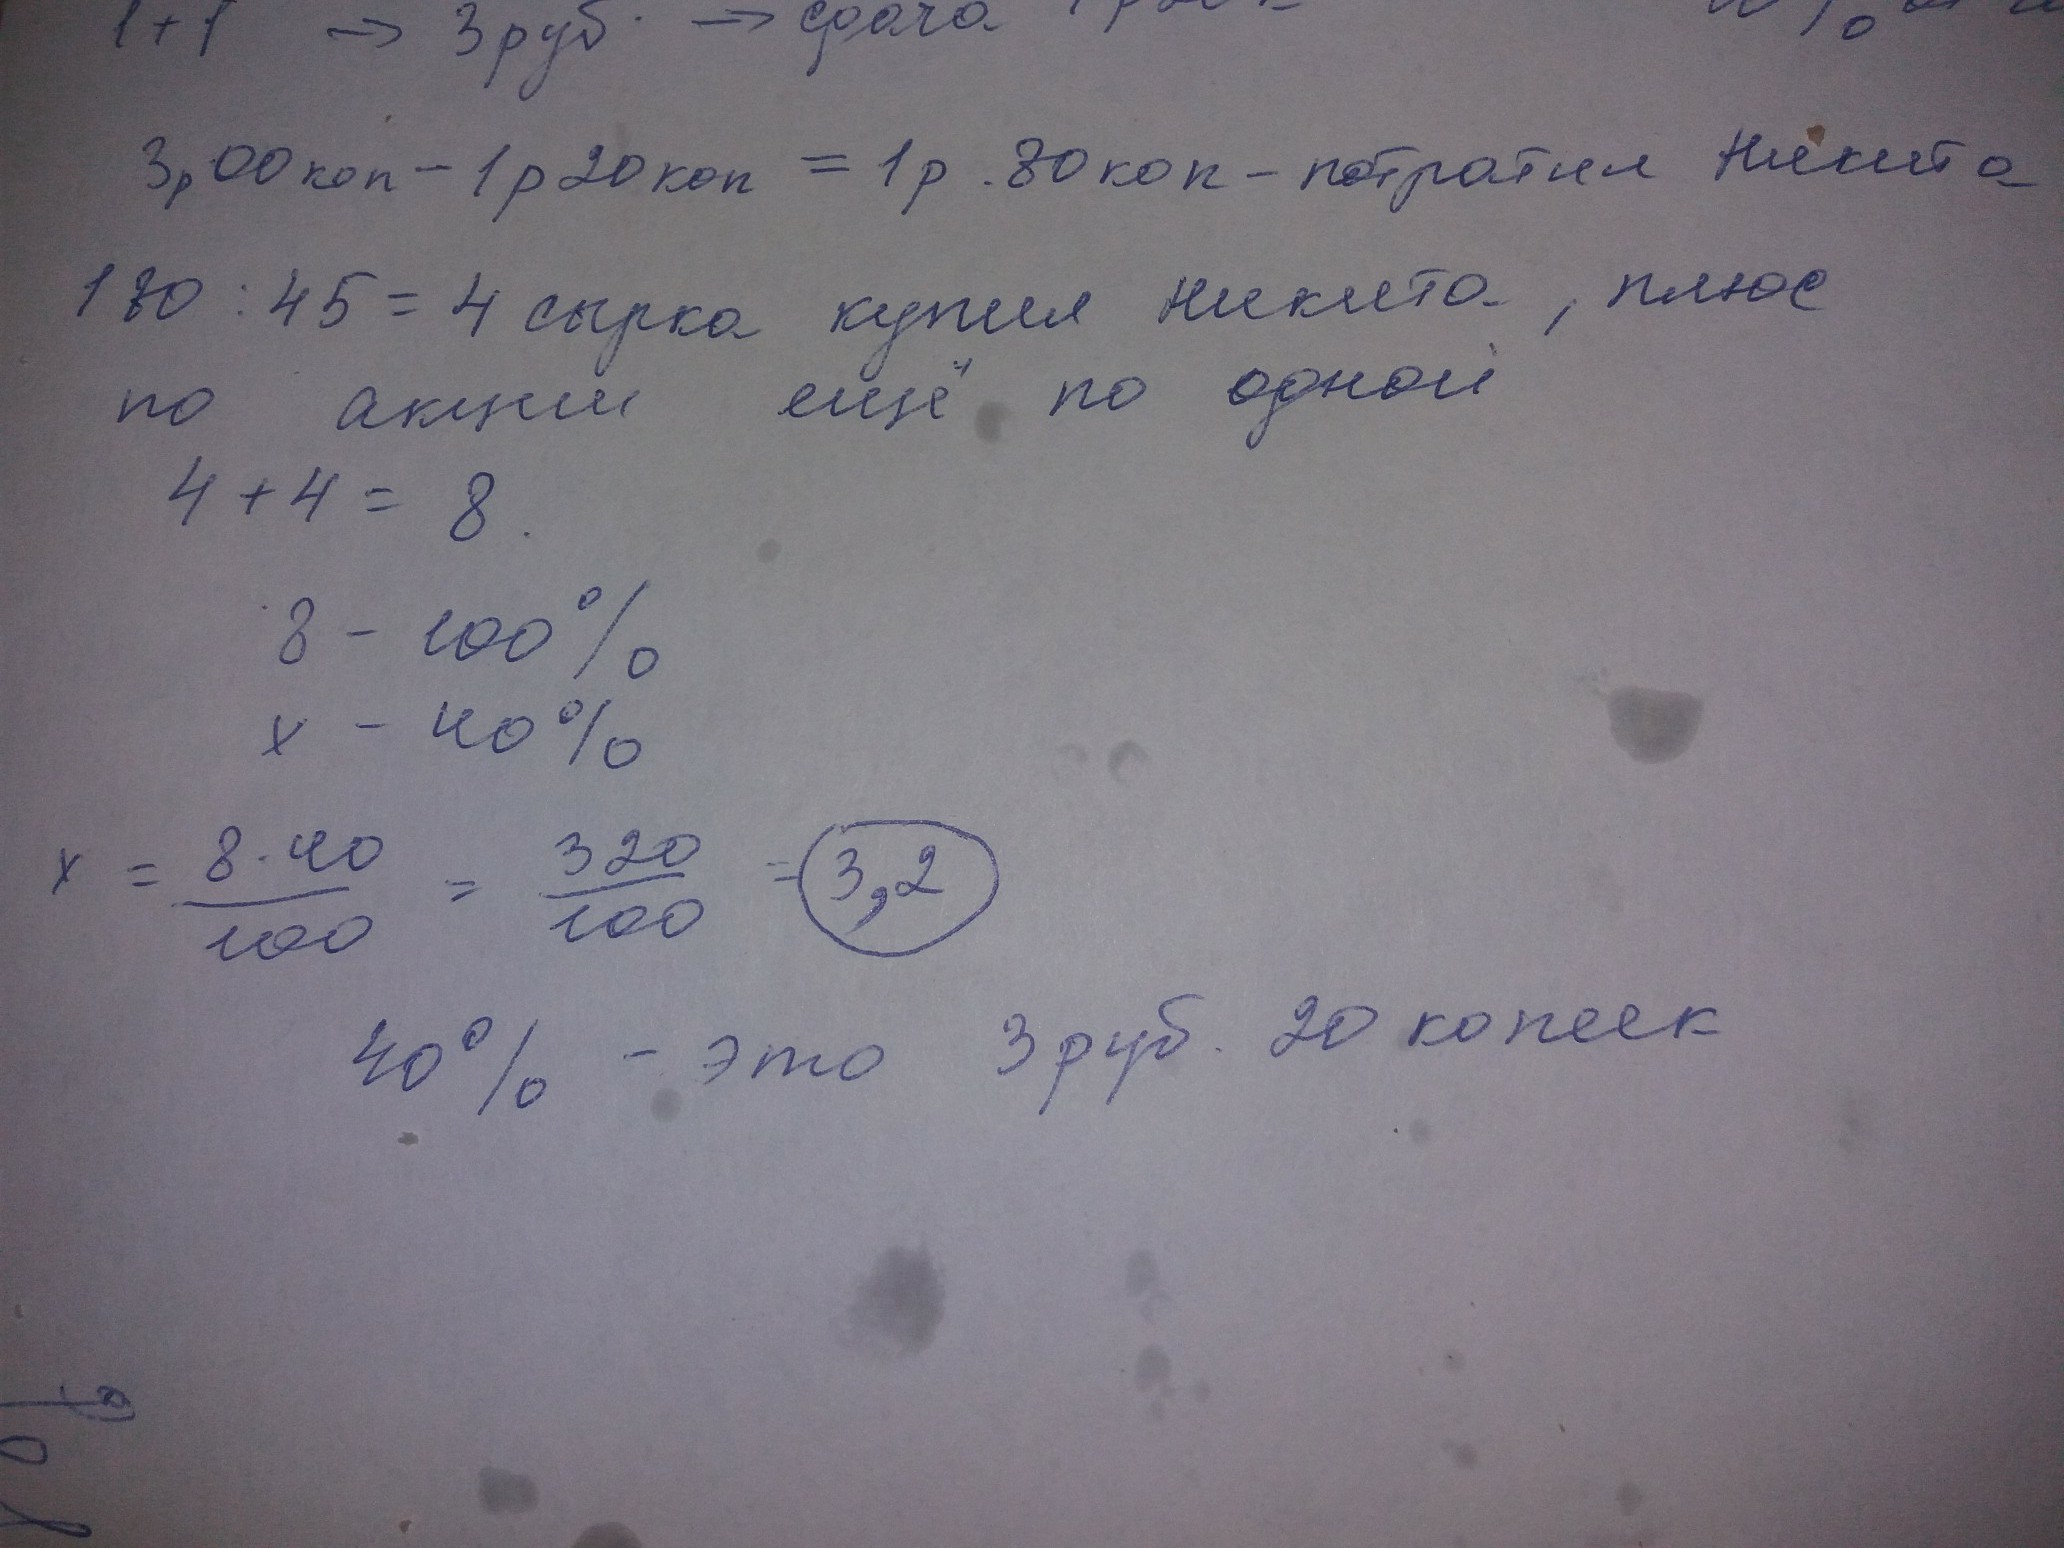 1+1 → 3 руб. → сдача
3р 00 коп – 1 р 20 коп = 1 р . 80 коп – потратил Никита
180 : 45 = 4 сырка купил Никита , плюс
по акции ещё по одной
4 + 4 = 8 .
8 – 100 %
x – 40 %
x = 8·40/100 = 320/100 = 3,2
40 % – это 3 руб. 20 копеек